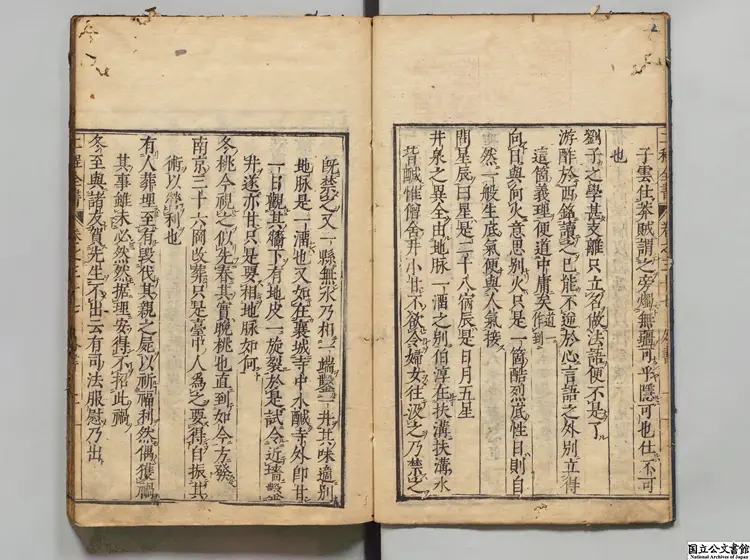 子雲仕莽賊謂之旁燭無疆可乎隱可也仕不可
也
劉子之學甚支離只立名做法語便不是了
游酢於西銘讀之已能不逆於心言語之外別立得
這箇義理便道中庸矣一作到
向日與向火意思別火只是一箇酷烈底性日則自
然一般生底氣便與人氣接
問星辰曰星是二十八宿辰是日月五星
井泉之異全由地脉一溜之別伯淳在扶溝扶溝水
皆鹹惟僧舍井小甘不欲令婦女往汲之乃禁之
既禁之又一縣無水乃相一端鑿一井其味適別
地脉是一溜也又如在襄城寺中水鹹寺外即甘
一日觀其牆下有地皮一旋裂於是試令近墻鑿
井遂亦甘只是要相地脉如何
冬桃今視之似先桒其實晚桃也直到如今方發
南京三十六岡改葬只是臺中人為之要得自振其
術以為利也
有人葬埋至有毀伐其親之屍以祈福利然偶獲禍
其事雖未必然然據理安得不招此禍
冬至與諸友賀先生不出云有司法服慰乃出
二程全書
國立公文書館
National Archives of Japan